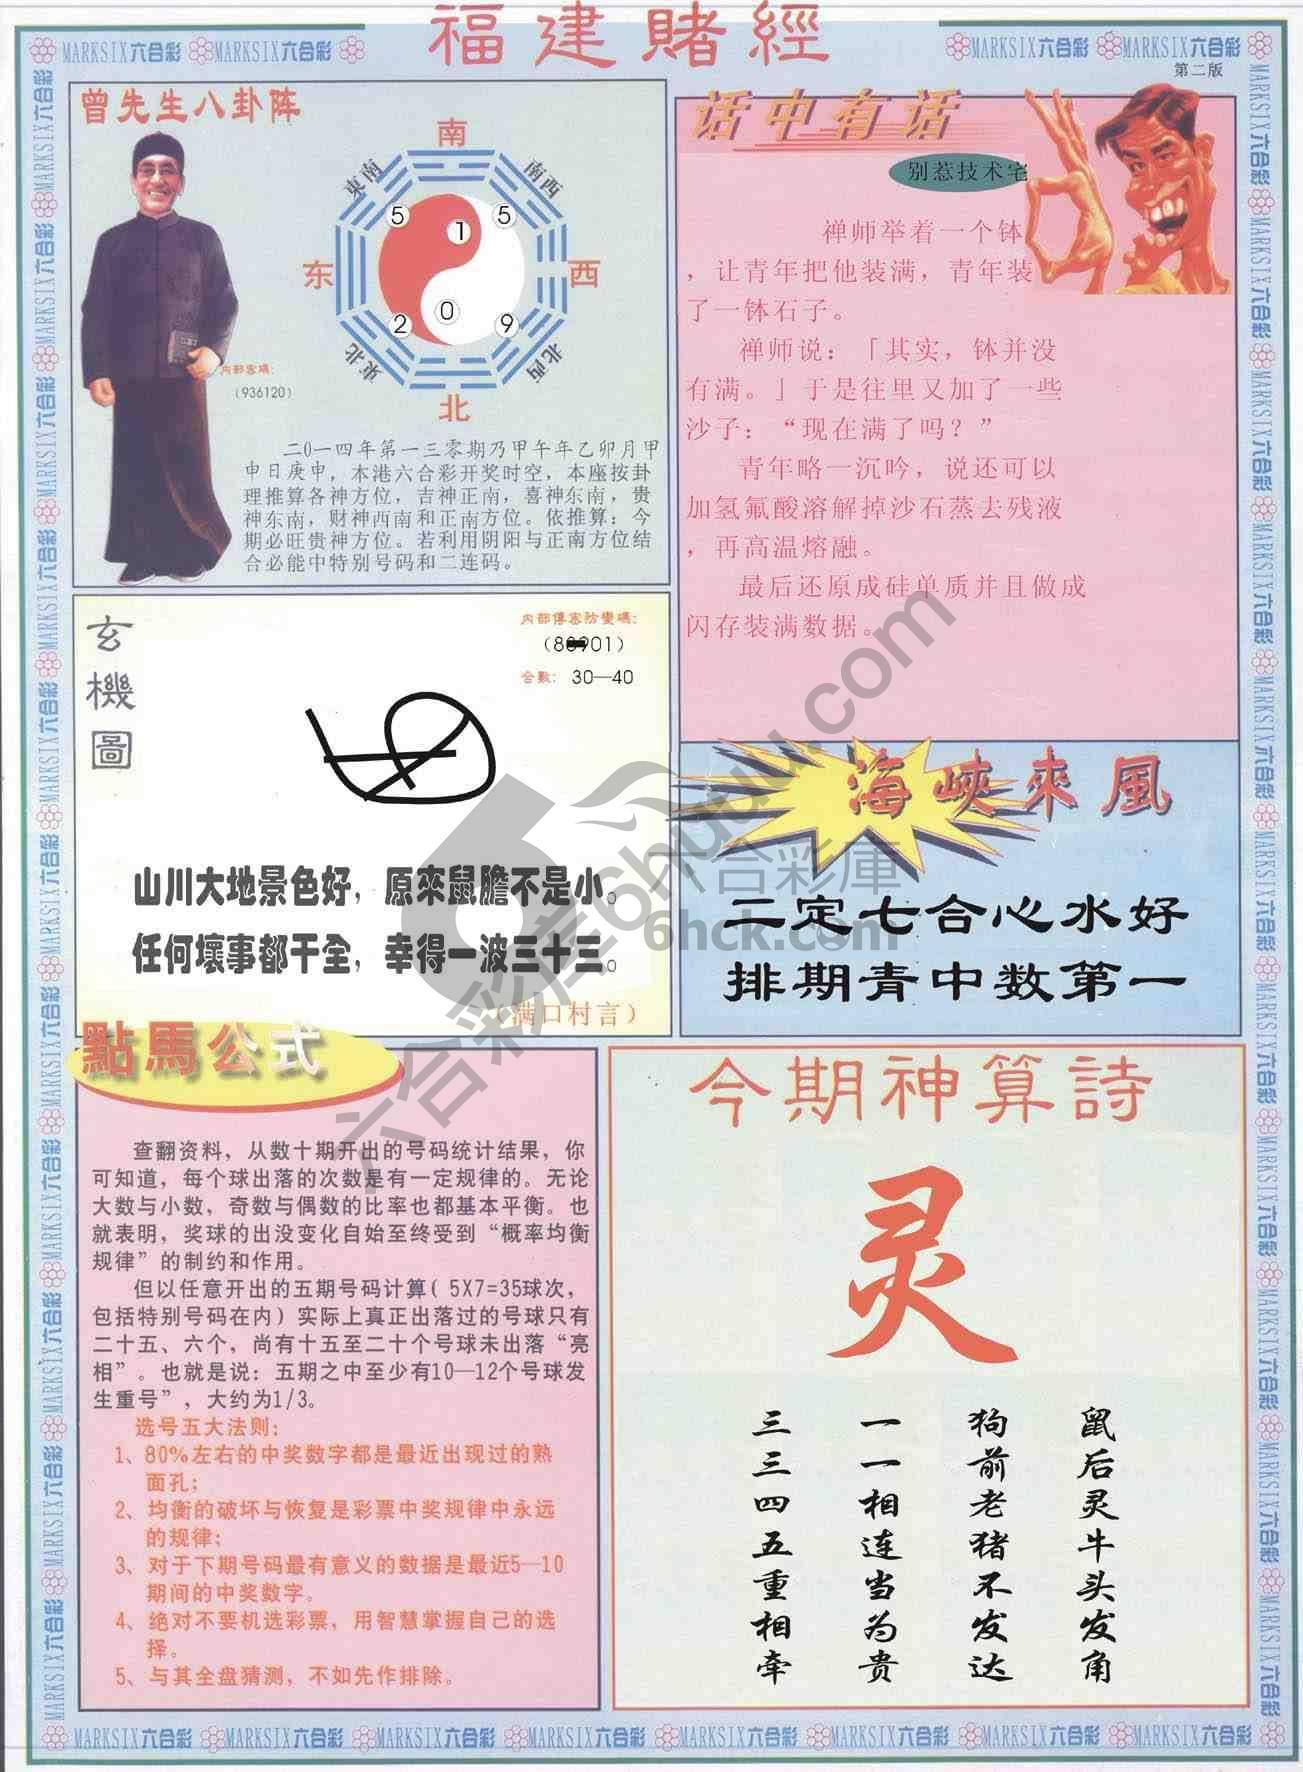 福建賭經
MARKSIX六合彩 MARKSIX六合彩
MARKSIX六合彩 MARKSIX六合彩
第二版
曾先生八卦阵
南
東南
南西
5
1
5
东
西
2
0
9
東北
北西
北
内部密碼:
(936120)
二0一四年第一三零期乃甲午年乙卯月甲
申日庚申,本港六合彩开奖时空,本座按卦
理推算各神方位,吉神正南,喜神东南,贵
神东南,财神西南和正南方位。依推算:今
期必旺贵神方位。若利用阴阳与正南方位结
合必能中特别号码和二连码。
话中有话
别惹技术宅
禅师举着一个钵
，让青年把他装满，青年装
了一钵石子。
禅师说：「其实，钵并没
有满。」于是往里又加了一些
沙子：“现在满了吗？”
青年略一沉吟，说还可以
加氢氟酸溶解掉沙石蒸去残液
，再高温熔融。
最后还原成硅单质并且做成
闪存装满数据。
玄機圖
内部傳密防變碼:
合數: 30—40
山川大地景色好，原來鼠膽不是小。
任何壞事都干全，幸得一波三十三。
（满口村言）
海峽來風
二定七合心水好
排期青中数第一
六合彩库6huuu.com
六合彩庫
6hck.com
點馬公式
查翻资料，从数十期开出的号码统计结果，你
可知道，每个球出落的次数是有一定规律的。无论
大数与小数，奇数与偶数的比率也都基本平衡。也
就表明，奖球的出没变化自始至终受到“概率均衡
规律”的制约和作用。
但以任意开出的五期号码计算( 5X7=35球次，
包括特别号码在内) 实际上真正出落过的号球只有
二十五、六个，尚有十五至二十个号球未出落“亮
相”。也就是说：五期之中至少有10—12个号球发
生重号”，大约为1/3。
选号五大法则:
1、80%左右的中奖数字都是最近出现过的熟
面孔;
2、均衡的破坏与恢复是彩票中奖规律中永远
的规律;
3、对于下期号码最有意义的数据是最近5—10
期间的中奖数字。
4、绝对不要机选彩票，用智慧掌握自己的选
择。
5、与其全盘猜测，不如先作排除。
今期神算詩
灵
鼠后灵牛头发角
狗前老猪不发达
一一相连当为贵
三三四五重相牵
MARKSIX六合彩 MARKSIX六合彩 MARKSIX六合彩 MARKSIX六合彩 MARKSIX六合彩 MARKSIX六合彩 MARKSIX六合彩 MARKSIX六合彩